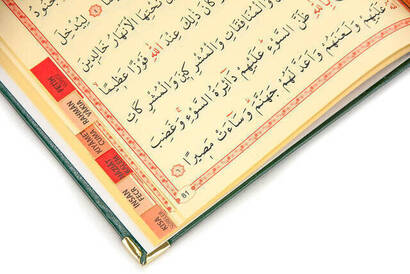 جُنُودُ
لِيُدْخِلَ
تَحْتِهَا الْاَنْهَارُ خَالِدِينَ
كَانَ ذٰلِكَ عِنْدَ اللّٰهِ فَوْزًا عَظِيمًا
وَالْمُنَافِقَاتِ وَالْمُشْرِكِينَ وَالْمُشْرِكَاتِ
ظَنَّ السَّوْءِ عَلَيْهِمْ دَائِرَةُ السَّوْءِ وَغَضِبَ
عَلَيْهِمْ وَلَعَنَهُمْ وَاَعَدَّ لَهُمْ جَهَنَّمَ وَسَاءَتْ مَصِيرًا ٦
81
FETİH
RAHMAN
VAKIA
KIYAMET
CUMA
KALEM
İNSAN
FECR
KISA
SURELER